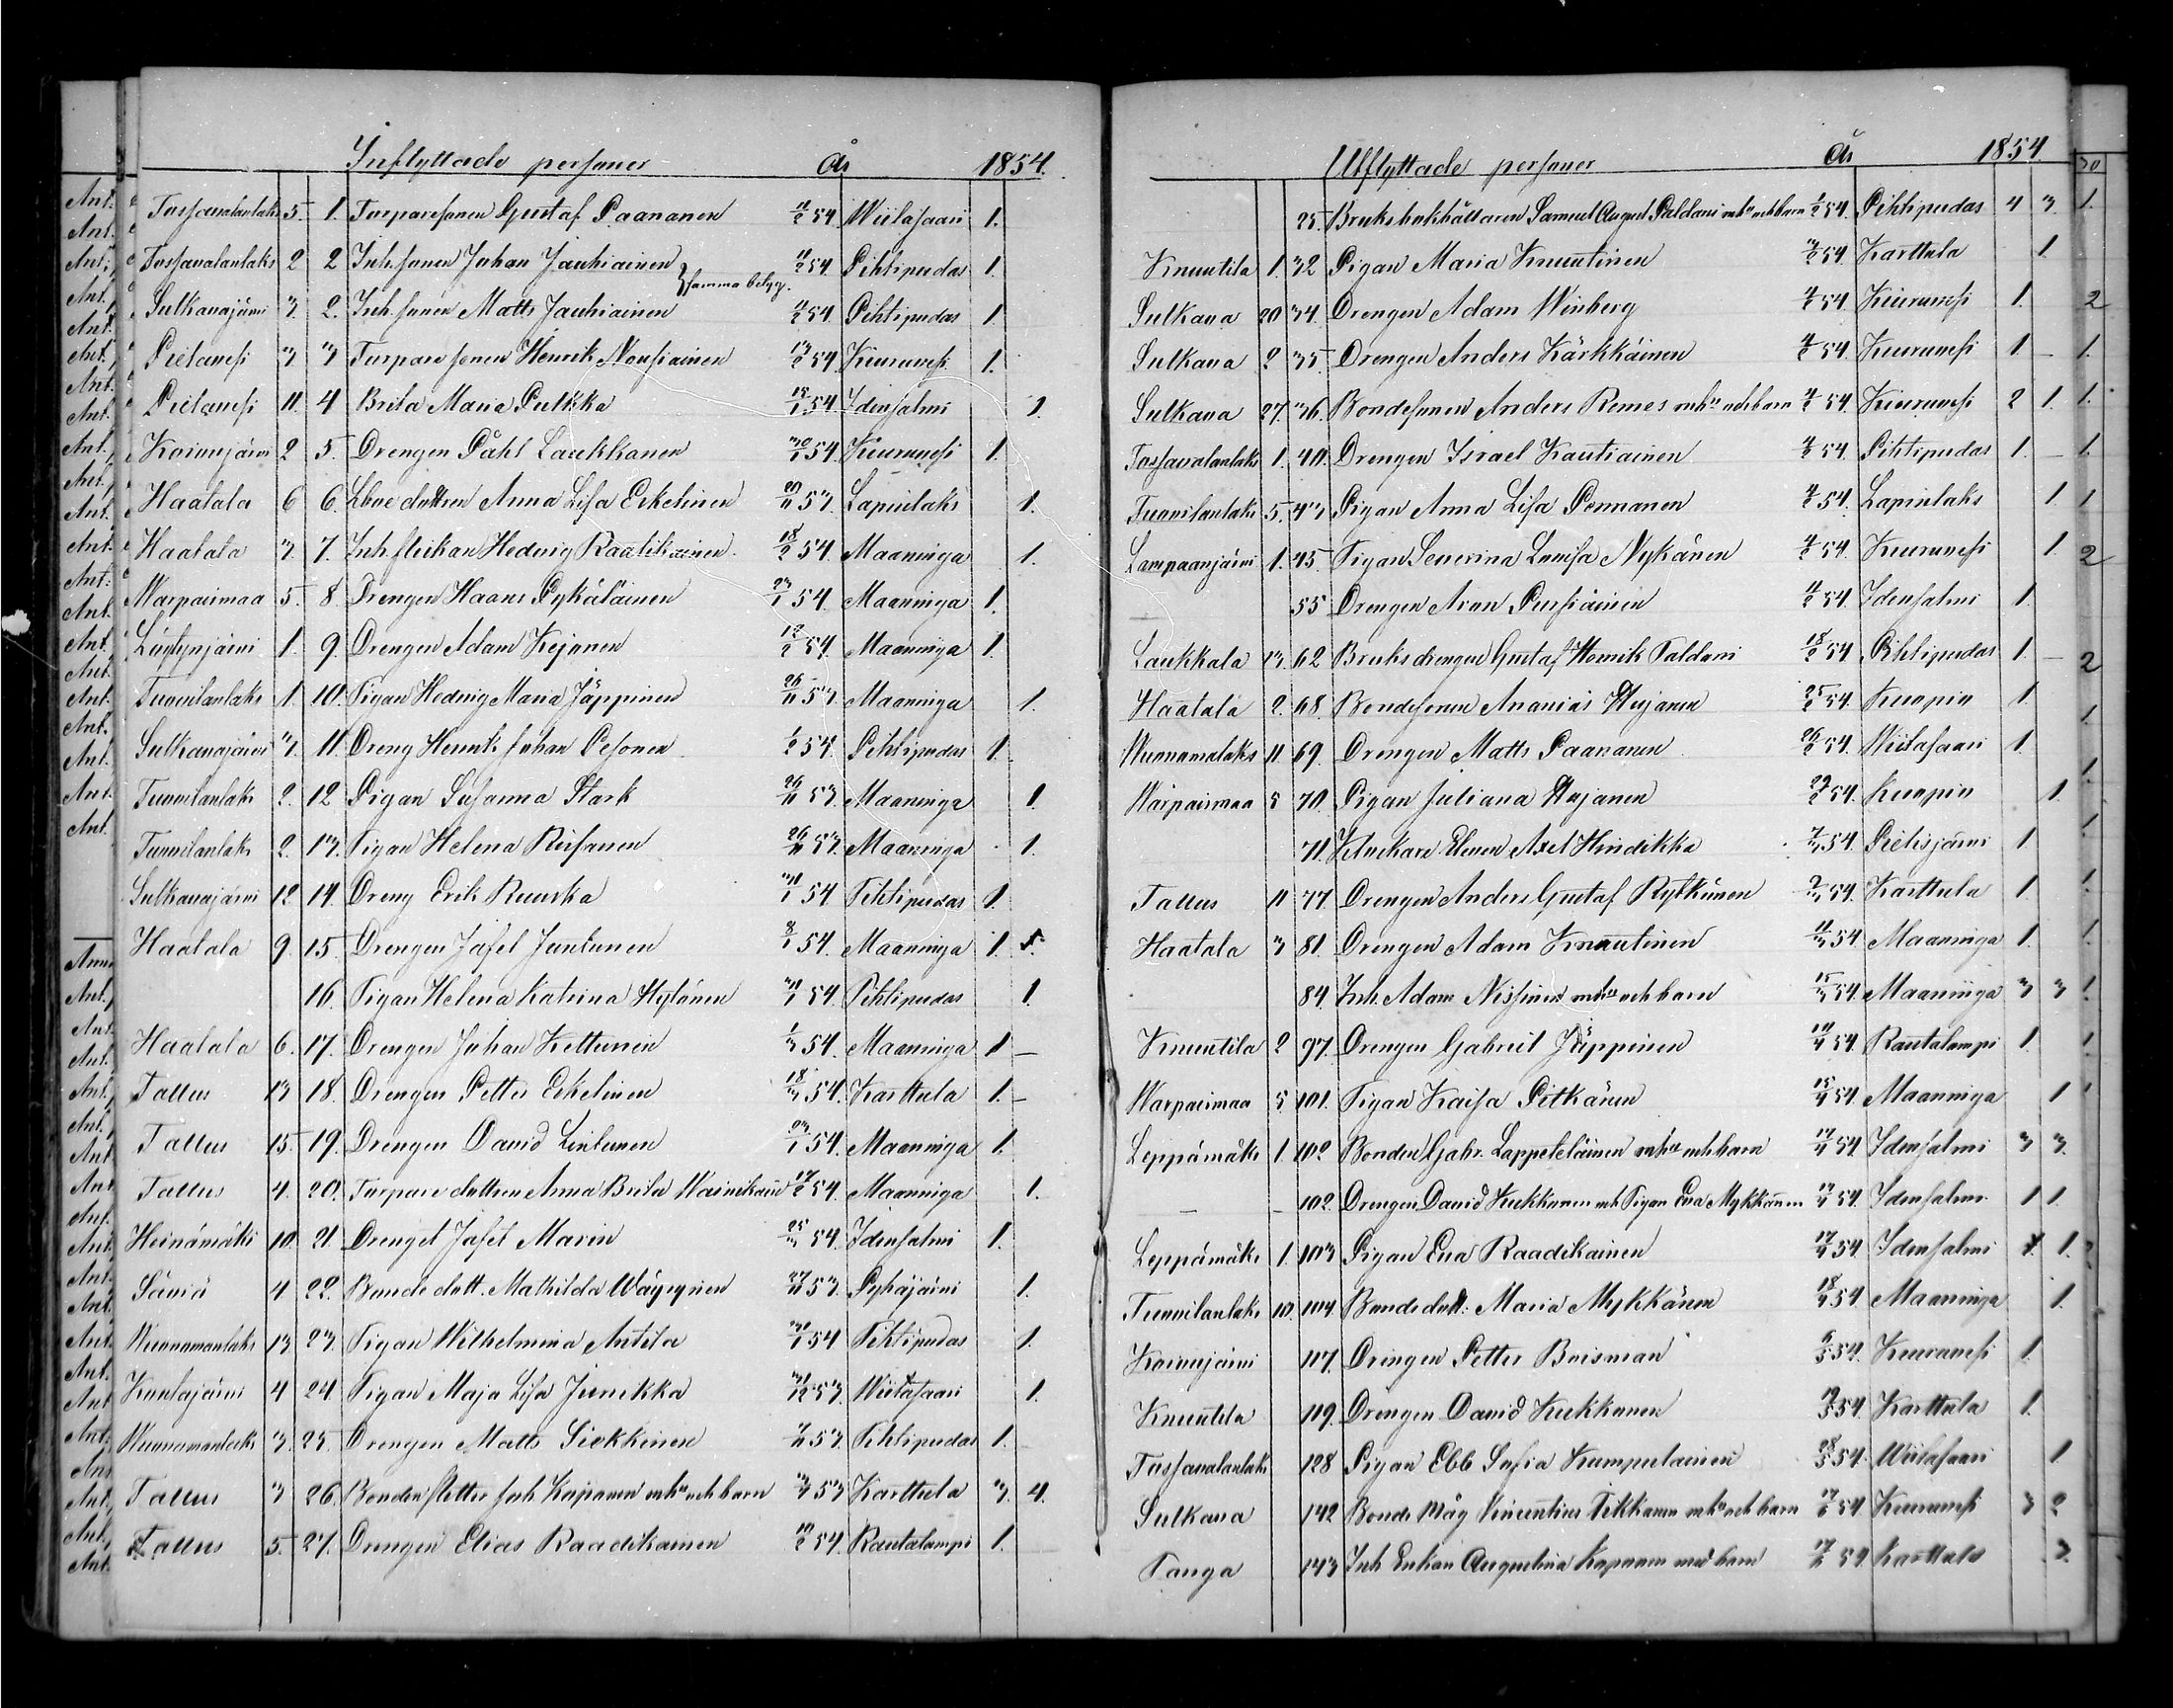 Inflyttade personer År 1854.
Tossavalanlaks 5. 1. Torparesonen Gustaf Paananen 11/2 54 Wiitasaari 1.
Tossavalanlaks 2 2 Inh. sonen Johan Jauhiainen 11/2 54. Pihtipudas 1.
} samma betyg.
Sulkavajärvi 3. 2. Inh. sonen Matts Jauhiainen 11/2 54. Pihtipudas 1.
Pielavesi 3 3 Torparesonen Henrik Nousiainen 13/2 54 Kiuruvesi 1.
Pielavesi 11. 4 Brita Maria Pulkka 15/1 54. Idensalmi 1.
Koivujärvi 2 5. Drengen Påhl Laukkanen 30/1 54 Kiuruvesi 1.
Haatala 6 6. Lboe dottren Anna Lisa Eskelinen 20/11 53. Lapinlaks 1.
Haatala 3 7. Inh. flickan Hedvig Raatikainen 18/2 54. Maaninga 1.
Warpaismaa 5. 8. Drengen Haans Pykäläinen 23/1 54. Maaninga 1.
Löytynjärvi 1. 9. Drengen Adam Kejonen 12/2 54. Maaninga 1.
Tuovilanlaks 1. 10. Pigan Hedvig Maria Jäppinen 26/11 53. Maaninga 1.
Sulkavajärvi 3. 11. Dreng Henrik Johan Pesonen 1/2 54. Pihtipudas 1.
Tuovilanlaks 2. 12 Pigan Susanna Stark 26/11 53. Maaninga 1.
Tuovilanlaks 2. 13. Pigan Helena Riissanen 26/11 53. Maaninga 1.
Sulkavajärvi 12 14. Dreng Erik Ruuska 31/1 54 Pihtipudas 1.
Haatala 9. 15. Drengen Jafet Juntunen 8/1 54. Maaninga 1.
16. Pigan Helena Katrina Hytönen 31/1 54. Pihtipudas 1.
Haatala 6. 17. Drengen Johan Kettunen 1/3 54. Maaninga 1 –
Tallus 13 18. Drengen Petter Eskelinen 18/3 54. Karttula 1. –
Tallus 15. 19. Drengen David Lintunen 23/1 54. Maaninga 1.
Tallus 4. 20. Torpare dottren Anna Brita Wainikain 17/2 54. Maaninga 1.
Heinämäki 10. 21. Drengen Jafet Marin 25/3 54. Idensalmi 1.
Säviä 4 22. Bonde dott. Mathilda Wäyrynen 27/11 53. Pyhäjärvi 1.
Wuonamanlaks 13 23. Pigan Wilhelmina Antila 31/1 54 Pihtipudas 1.
Kuntajärvi 4 24. Pigan Maja Lisa Junikka 31/12 53. Wiitasaari 1.
Wuonamanlaks 3. 25. Drengen Matts Siekkinen 7/11 53. Pihtipudas 1.
Tallus 3 26. Bonden Petter Joh Kopanen mhu och barn 53 Karttula 3. 4.
Tallus 5. 27. Drengen Elias Raadikainen 54. Rautalampi 1.
Utflyttade personer År 1854
25. Bruksbokhållaren Samuel August Paldani mhu och barn 1/2 54. Pihtipudas 4 3.
Knuutila 1. 32 Pigan Maria Knuutinen 3/2 54. Karttula 1.
Sulkava 20 34. Drengen Adam Winberg 4/2 54. Kiuruvesi 1.
Sulkava 2 35. Drengen Anders Kärkkäinen 4/2 54. Kiuruvesi 1. –
Sulkava 27. 36. Bondesonen Anders Remes mhu och barn 4/2 54. Kiuruvesi 2 1.
Tossavalanlaks 1. 40. Drengen Israel Kautiainen 4/2 54. Pihtipudas 1. –
Tuovilanlaks 5. 43 Pigan Anna Lisa Pennanen 4/2 54. Lapinlaks 1
Lampaanjärvi 1. 45. Pigan Severina Lovisa Nykänen 4/2 54. Kiuruvesi 1.
55 Drengen Aron Pursiainen 11/2 54. Idensalmi 1.
Laukkala 13. 62 Bruksdrengen Gustaf Henrik Paldani 18/2 54. Pihtipudas 1. –
Haatala 2. 68. Bondesonen Ananias Hujanen 25/2 54. Kuopio 1.
Wuonamalaks 11 69. Drengen Matts Paananen 26/2 54. Wiitasaari 1.
Warpaismaa 5 70. Pigan Juliana Hujanen 27/2 54. Kuopio 1.
71. Klockare Eleven Axel Hindikka 7/3 54. Pielisjärvi 1
Tallus 11 77. Drengen Anders Gustaf Rytkönen 9/3 54. Karttula 1
Haatala 3 81. Drengen Adam Knuutinen 11/3 54 Maaninga 1.
84. Inh. Adam Nissinen mhu och barn 15/3 54. Maaninga 3 3
Knuutila 2 97. Drengen Gabriel Jäppinen 10/4 54. Rautalampi 1.
Warpaismaa 5 101. Pigan Kaisa Pitkänen 15/4 54. Maaninga 1
Leppämäki 1. 102 Bonden Gabr. Lappeteläinen mhu och barn 17/4 54 Idensalmi 3 3.
– – 102. Drengen David Kukkonen och Pigan Eva Mykkänen 17/4 54. Idensalmi 1 1.
Leppämäki 1. 103 Pigan Eva Raadikainen 17/4 54. Idensalmi 1.
Tuovilanlaks 10. 104. Bonde dott: Maria Mykkänen 18/4 54. Maaninga 1.
Koivujärvi 117. Drengen Petter Brisman 6/5 54. Kiuruvesi 1.
Knuutila 119. Drengen David Kukkonen 54. Karttula 1.
Tossavalanlaks 128 Pigan Ebb Sofia Kumpulainen 28/5 54. Wiitasaari 1
Sulkava 142 Bonde Måg Vincentius Tikkanen mhu och barn 17/6 54. Kiuruvesi 3 2
Panga 143 Inh Enkan Augustina Kopanen med barn 17/6 54 Karttula 3.